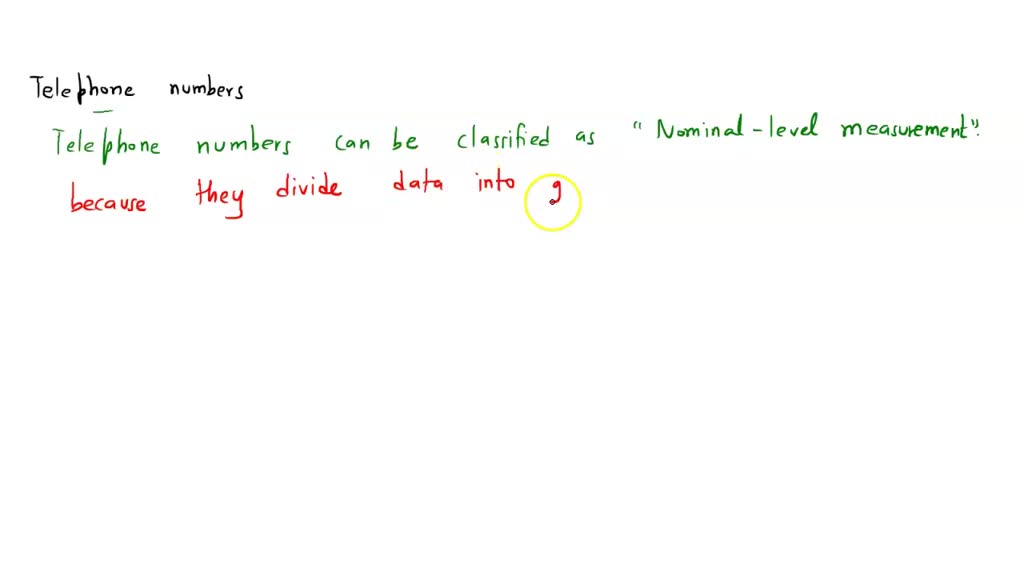 Telephone numbers
Telephone numbers can be classified as "Nominal-level measurement".
because they divide data into g